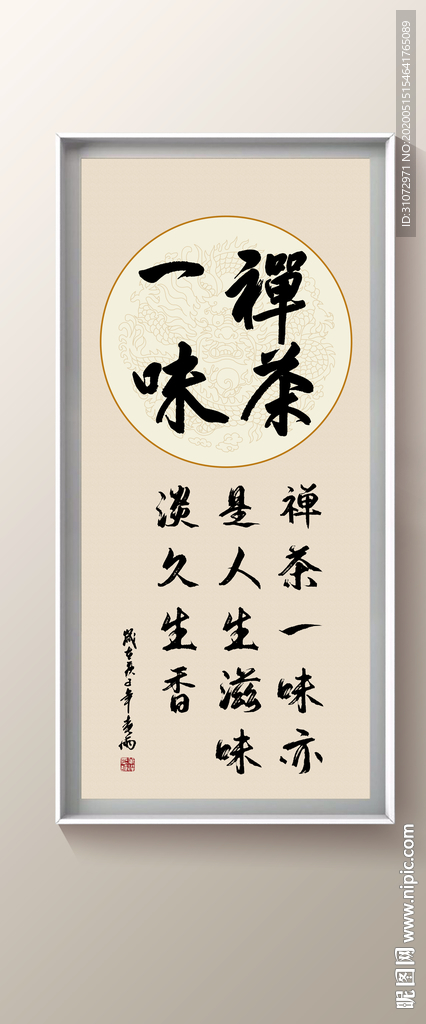 禪茶
一味
禅茶一味亦
是人生滋味
淡久生香
歲在庚子年春雨
ID:31072971 NO:20200515154641765089
昵图网 www.nipic.com